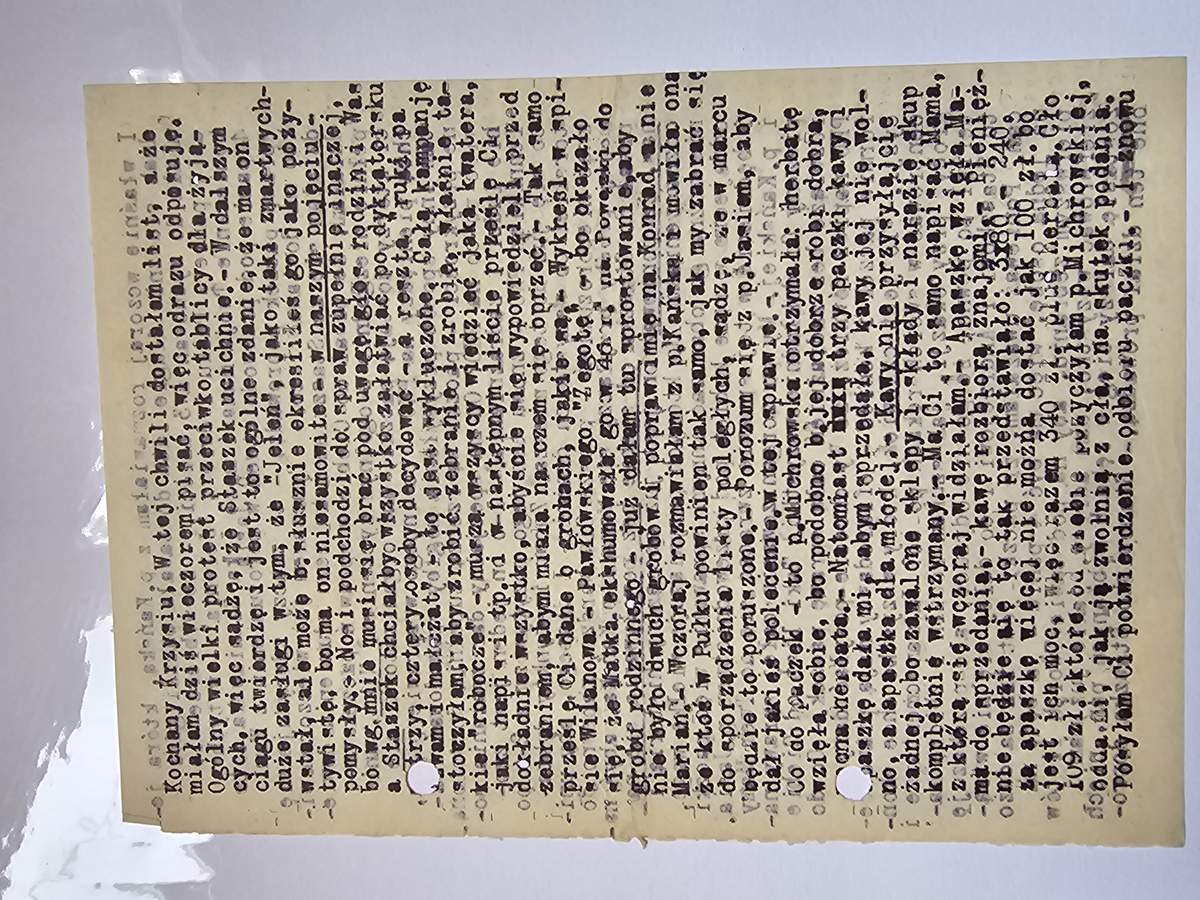 Kochany Krzysiu, W tej chwili dostałem list, a że
miałam dziś wieczorem pisać, więc odrazu odposuję.
Ogólny wielki protest przeciwko tablicy dla żyją-
cych, więc sądzę, że Staszek ucichnie.- W dalszym
ciągu twierdzę i jest to ogólne zdanie, że masz on
duże zasługi w tym, że "Jeleń", jako taki zmartwych-
wstał, ale może b. słusznie określiłeś go jako pozy-
tywistę, bo ma on niesamowite - w naszym pojęciu -
pomysły. No i podchodzi do spraw zupełnie inaczej,
bo wg mnie musi się brać pod uwagę głos rodzin i Was
a Staszek chciałby wszystko załatwiać po dyktatorsku
trzy, cztery osoby decydować - a reszta "ruki pa
szwam pomałczat" - to jest wykluczone. Całą kampanję
stoczyłam, aby zrobić zebranie i zrobię, właśnie ta-
kie "robocze" - muszą wszyscy wiedzieć jaka kwatera,
jaki napis itp. i w następnym liście prześlę Ci
dokładnie wszystko, abyście się wypowiedzieli przed
zebraniem, abym miała na czem się oprzeć.- Tak samo
prześlę Ci dane o grobach, jakie są.- Wykreśl w spi-
sie Wilanowa - Pawłowskiego "Żegotę" - bo okazało
się, że Matka ekshumowała go w 46 r. na Powązki do
grobu rodzinnego - już dałam tu sprostowanie, aby
nie było dwuch grobów i popraw imię na Konrad a nie
Marian.- Wczoraj rozmawiałam z p. Kańską i mówiła ona
że ktoś w Pułku powinien tak samo, jak my zabrać się
do sporządzenia listy poległych, sądzę, że w marcu
będzie to poruszone.- Porozum się z p. Jasiem, aby
dał jakieś polecenie w tej sprawie.-
Co do paczek - to p. Michrowska otrzymała: herbatę
wzięła sobie, bo podobno b. jej dobrze robi dobra,
herbata.- Natomiast trzy paczki kawy i
apaszkę dała mi abym sprzedała, kawy jej nie wol-
no, a apaszka dla młodej.- Kawy nie przysyłajcie
żadnej, bo zawalone sklepy i składy i narazie skup
kompletnie wstrzymany.- Ma Ci to samo napisać Mama,
z którą się wczoraj widziałam.- Apaszkę wzięła Ma-
ma do sprzedania, - kawę rozbiorą znajomi - pienięż-
nie będzie się to tak przedstawiało: 3x80 - 240,
za apaszkę więcej nie można dostać jak 100 zł. bo
jest ich moc, więc razem 340 zł, plus herbata. Cło
109 zł., które od siebie pożyczyłam p. Michrowskiej,
odda mi, jak ją zwolnią z cła, na skutek podania.
Posyłam Ci potwierdzenie odbioru paczki.- I znowu